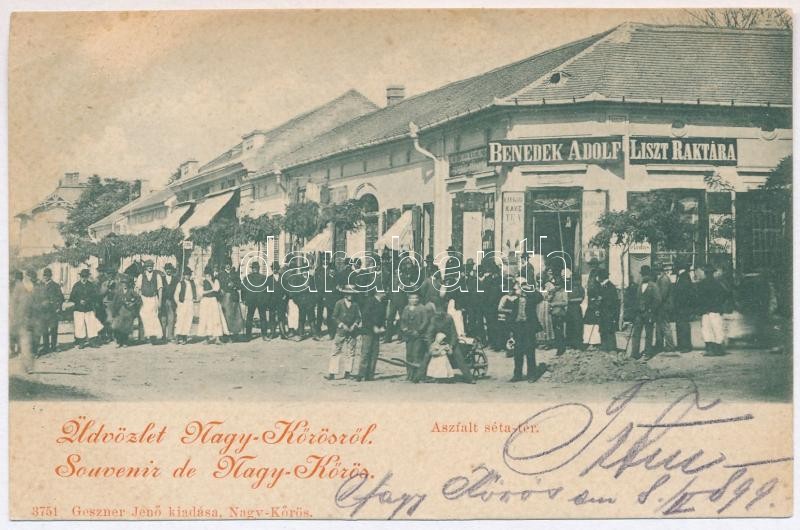 BENEDEK ADOLF LISZT RAKTÁRA
KÁVÉ
TEA
darabanth
Üdvözlet Nagy-Kőrösről.
Aszfalt séta-tér.
Souvenir de Nagy-Kőrös.
Nagy Kőrös am 8/ 899
3751 Geszner Jenő kiadása, Nagy-Kőrös.